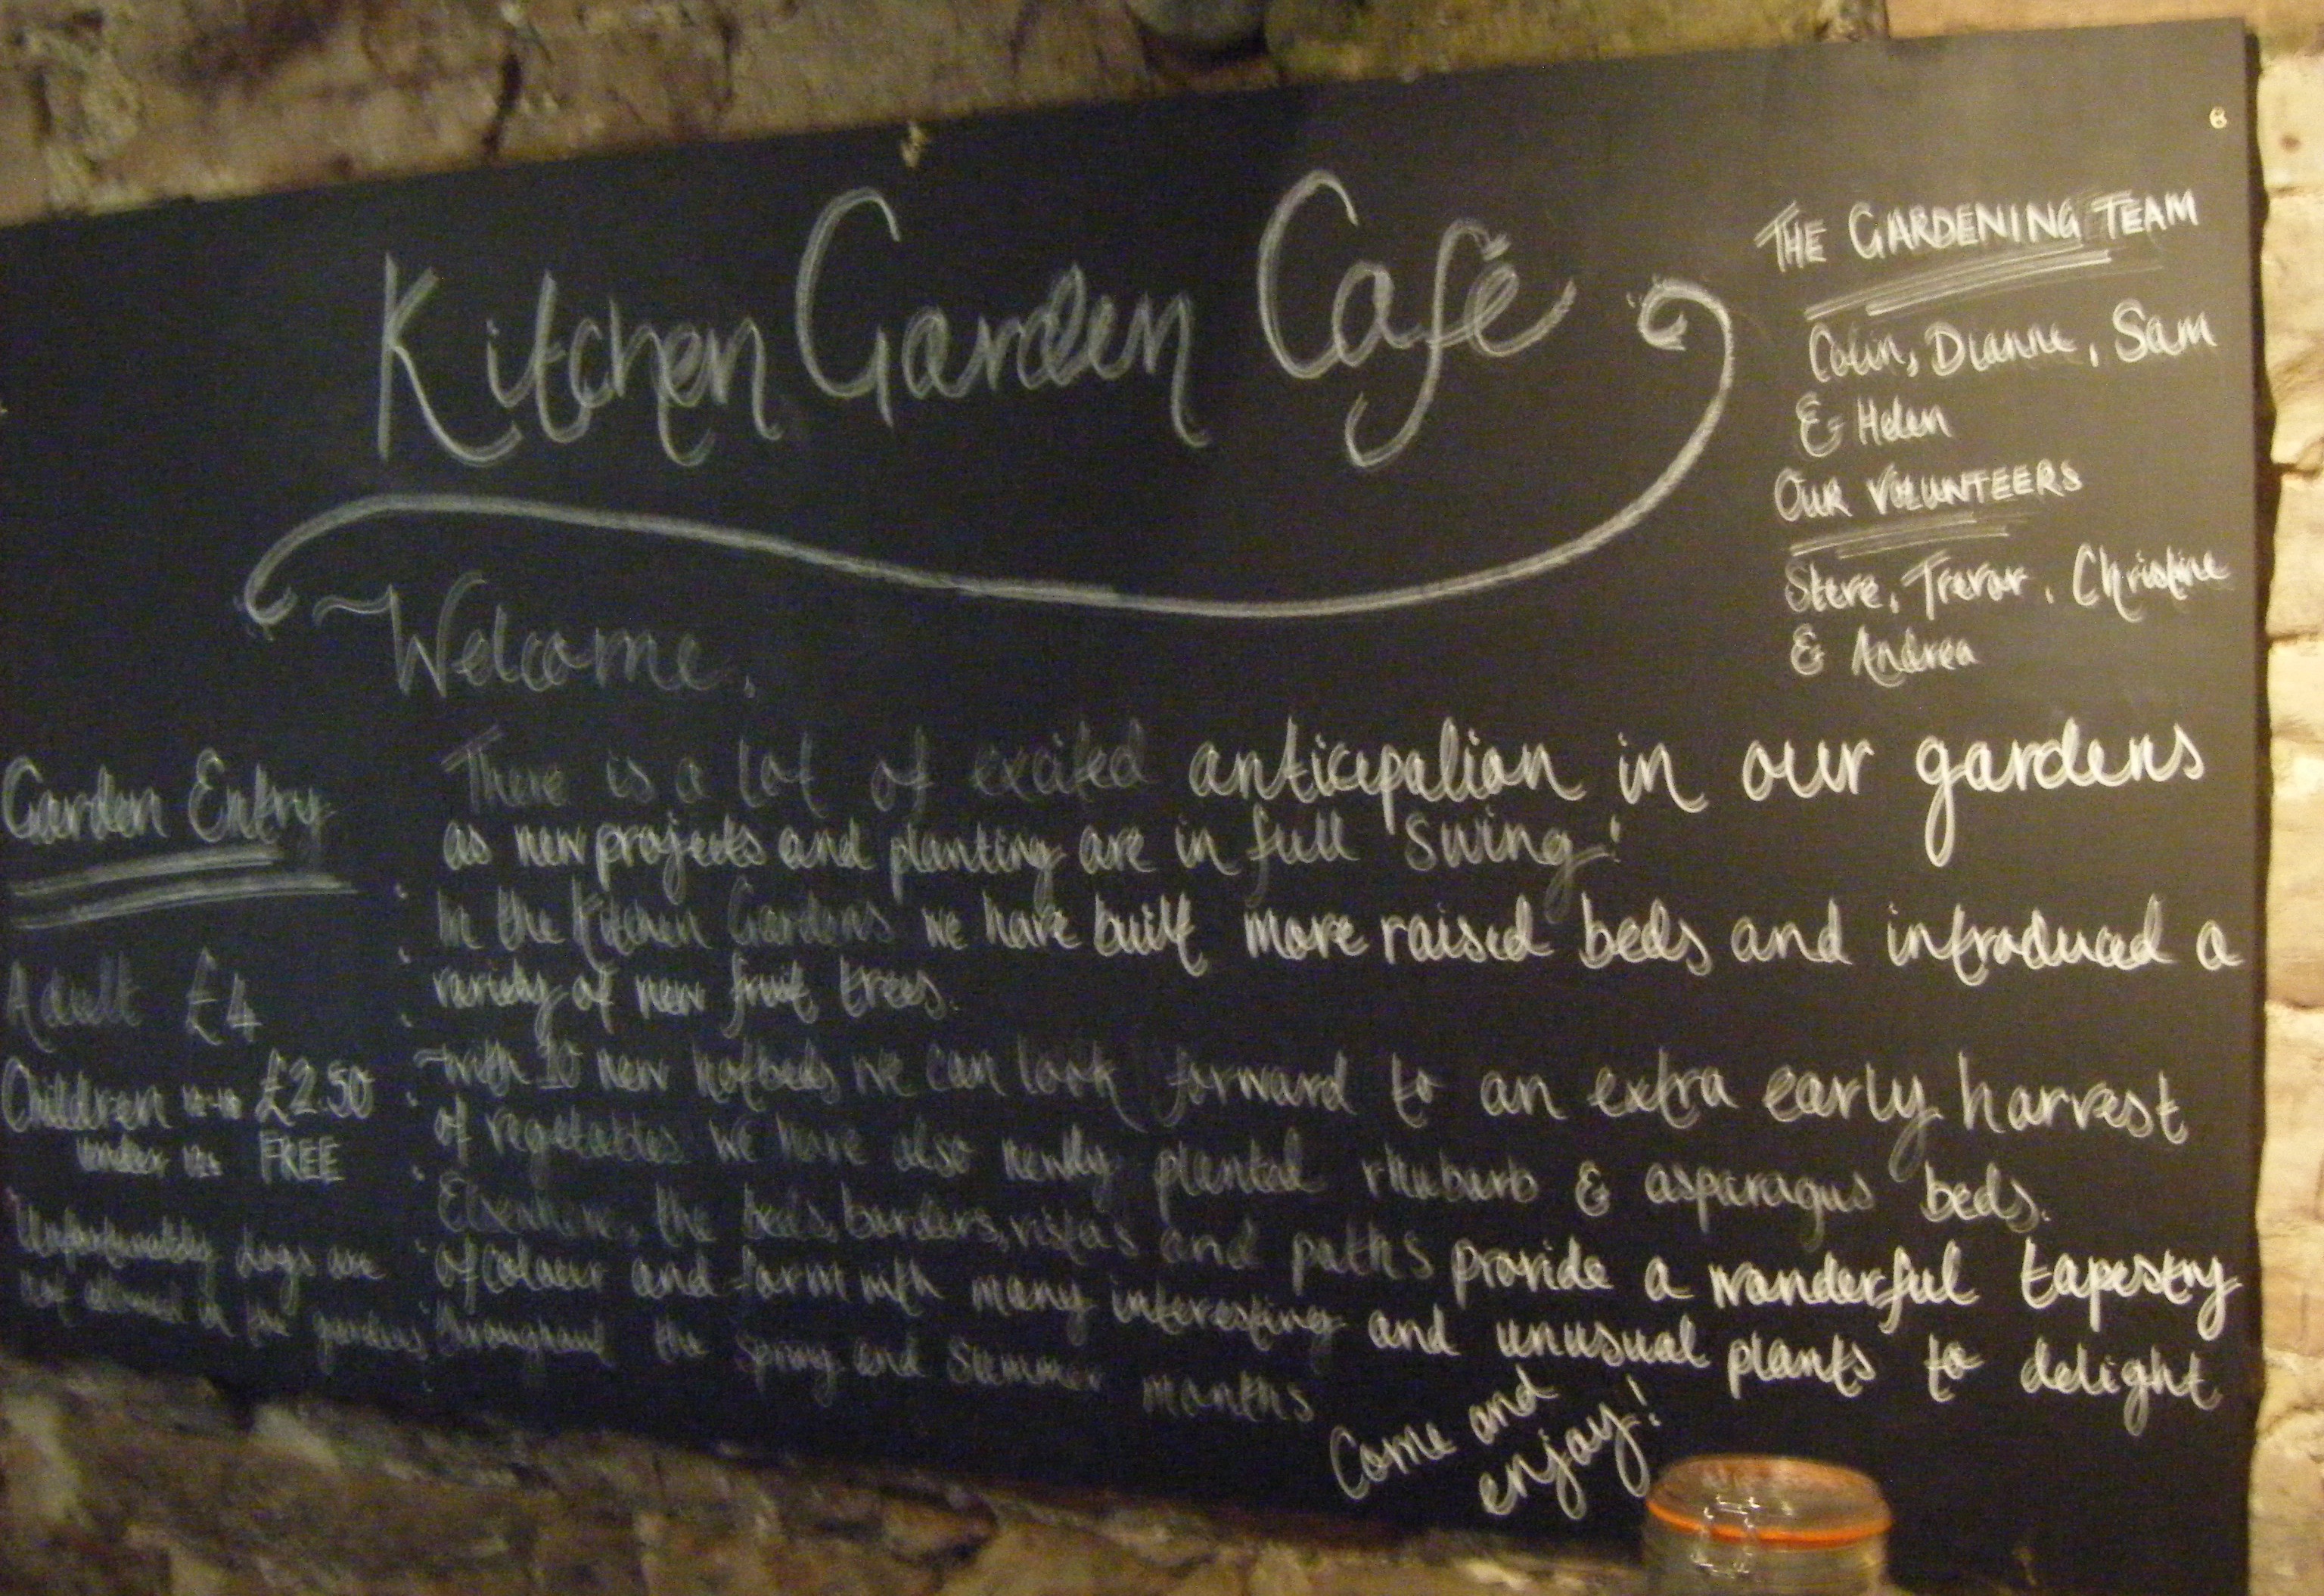 Kitchen Garden Café
THE GARDENING TEAM
Colin, Dianne, Sam
& Helen
OUR VOLUNTEERS
Steve, Trevor, Christine
& Andrea
Welcome.
There is a lot of excited anticipation in our gardens
as new projects and planting are in full swing!
In the Kitchen Gardens we have built more raised beds and introduced a
variety of new fruit trees.
with 10 new hotbeds we can look forward to an extra early harvest
of vegetables we have also newly planted rhubarb & asparagus beds.
Elsewhere, the beds, borders, vistas and paths provide a wonderful tapestry
of colour and form with many interesting and unusual plants to delight
throughout the Spring and Summer months
Come and
enjoy!
Garden Entry
Adult £4
Children £2.50
under FREE
Unfortunately dogs are
not allowed in the gardens